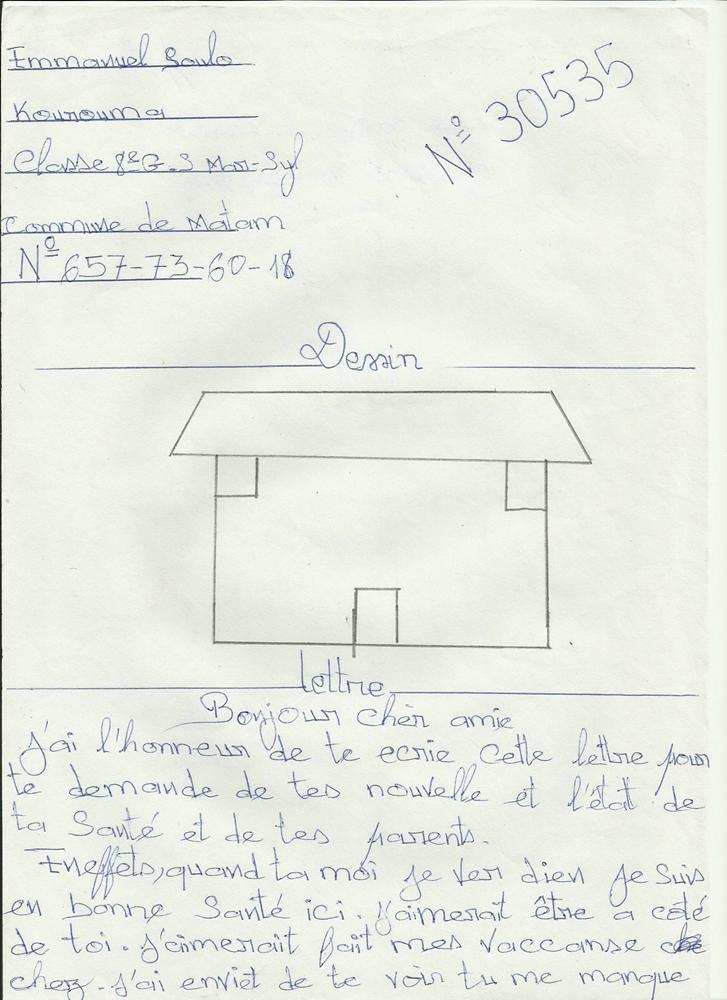 Emmanuel Saulo
N° 30535
Kourouma
Classe 8e G.S Mar-Syl
Commune de Matam
N° 657-73-60-18
Dessin
lettre
Bonjour chèr amie
J'ai l'honneur de te ecrie cette lettre pour
te demande de tes nouvelle et l'état de
ta Santé et de tes parents.
Eneffets, quand ta moi je ver dien je suis
en bonne Santé ici. j'aimerait être a coté
de toi. J'aimerait fait mes vaccanse
chez. j'ai enviet de te voir tu me manque